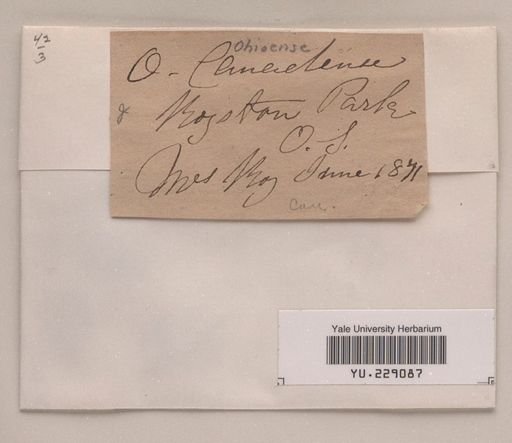 42
3
Ohioense
O. Canadense
Royston Park
O. S.
Mrs Roy June 1871
Can.
Yale University Herbarium
YU.229087